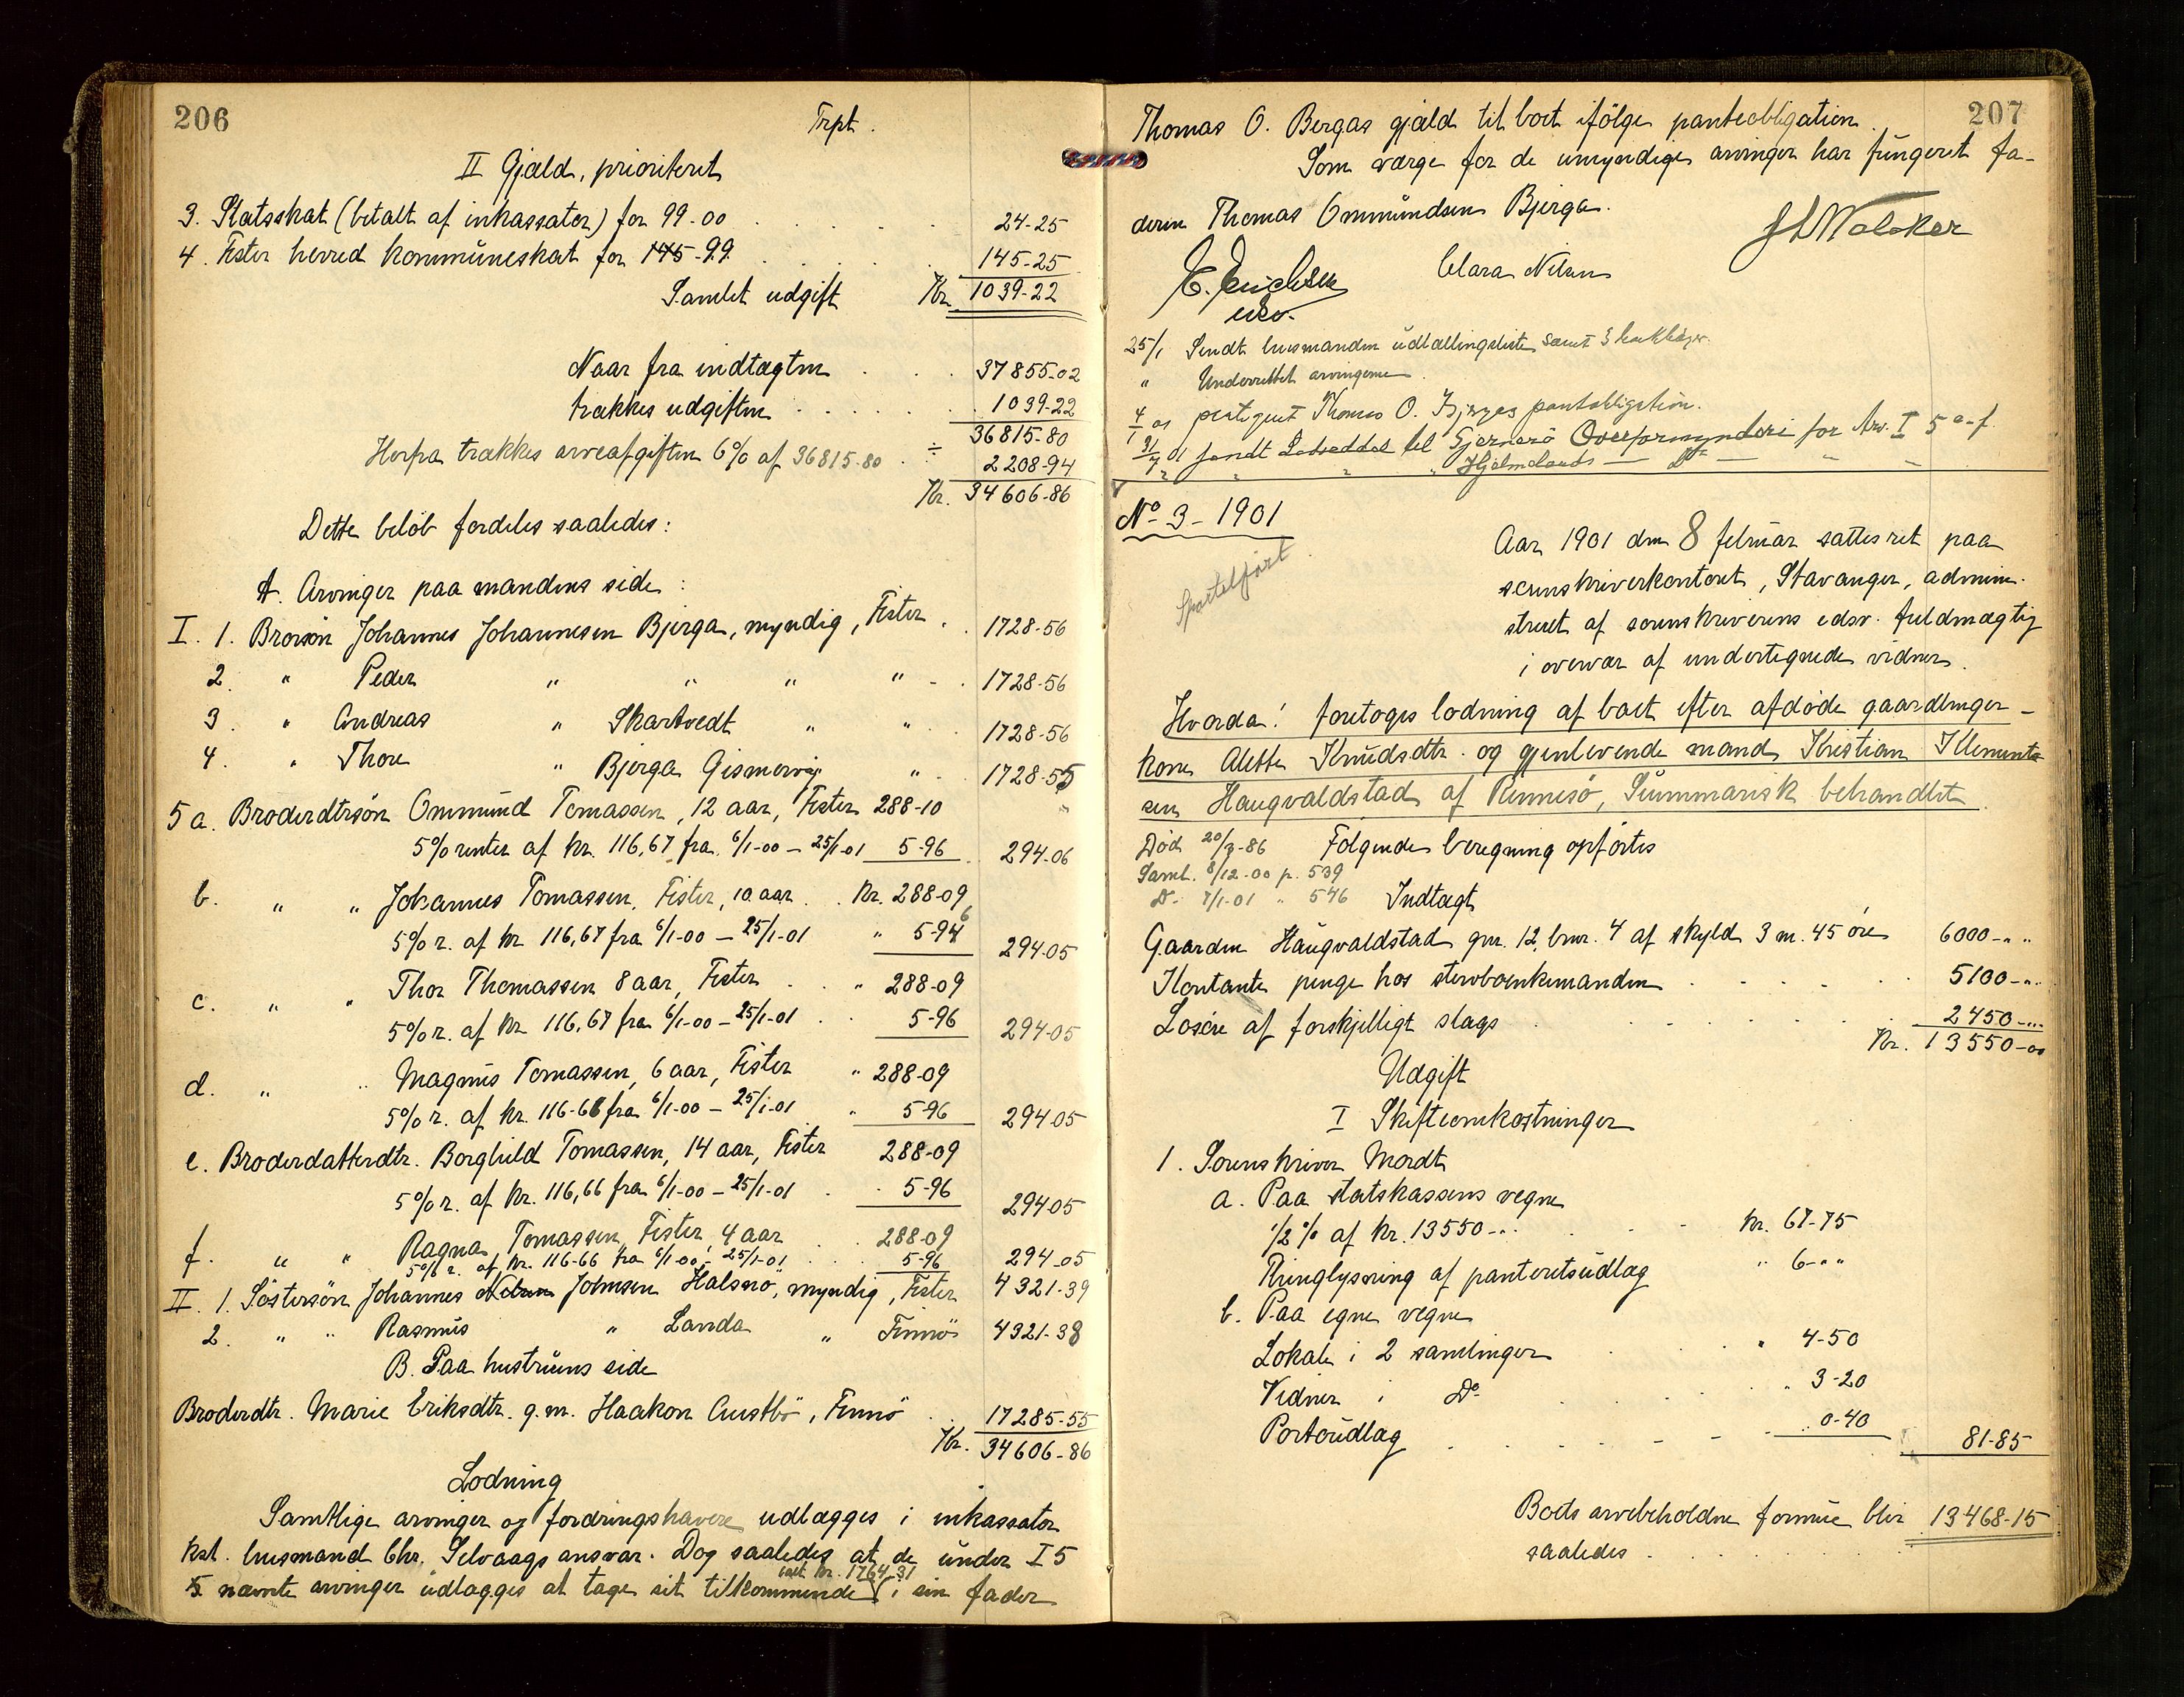 206
Trpt.
II Gjæld, prioriteret
3. Statsskat (betalt af inkassator) for 99-00 . . . 24-25
4. Fister herred kommuneskat for 145-99 . . . 145-25
Samlet udgift Kr. 1039-22
Naar fra indtægten . . . 37855-02
trækkes udgiften . . . 1039-22
36815-80
Herfra trækkes arveafgiften 6% af 36815.80 . ÷ 2208-94
Kr. 34606-86
Dette beløb fordeles saaledes:
A. Arvinger paa mandens side:
I. 1. Brorsøn Johannes Johannesen Bjerga, myndig, Fister . . 1728-56
2. " Peder " " " " - . 1728-56
3. " Andreas " Skartvedt " " . . 1728-56
4. " Thore " Bjerga Gismervig " . 1728-55
5 a. Broderdtrsøn Ommund Tomassen, 12 aar, Fister 288-10 "
5% renter af kr. 116,67 fra 6/1-00 – 25/1-01 5-96 . 294-06
b. " " Johannes Tomassen, Fister, 10 aar . . Kr. 288-09
5% r. af kr 116,67 fra 6/1-00 – 25/1-01 " 5-946 294-05
c. " " Thor Thomassen 8 aar, Fister . . " 288-09
5% r. af kr 116,67 fra 6/1-00 – 25/1-01 . . 5-96 294-05
d. " " Magnus Tomassen, 6 aar, Fister " 288-09
5% r. af kr. 116-66 fra 6/1-00 – 25/1-01 " 5-96 294-05
e. Broderdatterdtr. Borghild Tomassen, 14 aar, Fister 288-09
5% r. af kr. 116,66 fra 6/1-00 – 25/1-01 . . 5-96 294-05
f. " " Ragna Tomassen, Fister, 4 aar . . 288-09
5% r. af kr. 116-66 fra 6/1-00 – 25/1-01 . . 5-96 294-05
II. 1. Søstersøn Johannes Nelsen Johnsen Halsnø, myndig, Fister 4321-39
2. " " Rasmus " Landa " Finnø 4321-38
B. Paa hustruens side
Broderdtr. Marie Eriksdtr. g.m. Haakon Austbø, Finnø . . 17285-55
Kr. 34606-86
Lodning
Samtlige arvinger og fordringshavere udlægges i inkassator
kst. lensmand Chr. Selvaags ansvar. Dog saaledes at de under I 5
5 nævnte arvinger udlægges at tage sit tilkommende ialt kr. 1764-31 i sin fader
207
Thomas O. Bergas gjæld til boet ifølge panteobligation.
Som værge for de umyndige arvinger har fungeret fa-
deren Thomas Ommundsen Bjerga.
E. Erichsen
edsv.
Clara Nilsen
25/1 Sendt lensmanden udlodningsliste samt 3
" Underrettet arvingerne
4/1 01 Thomas O. Bjergas pantobligation.
til Overformynderi for Arv. I 5 a-f.
" " " Hjelmelands — Do — " —
No 3 - 1901
Sportelført
Aar 1901 den 8 februar sattes ret paa
sorenskriverkontoret, Stavanger, admini-
streret af sorenskriverens edsv. fuldmægtig
i overvær af undertegnede vidner.
Hvorda! foretoges lodning af boet efter afdøde gaardbruger-
kone Alette Knudsdtr. og gjenlevende mand Kristian Klemmet-
sen Haugvaldstad af Rennesø, Summarisk behandlet.
Død 20/3-86 Følgende beregning opførtes
Saml. 8/12-00 p. 539
Do. 7/1-01 " 546 Indtægt
Gaarden Haugvaldstad gnr. 12, bnr. 4 af skyld 3 m. 45 øre 6000-" "
Kontante penge hos stervboenkemanden . . . 5100-" "
Løsøre af forskjelligt slags . . . 2450-" "
Kr. 13550-00
Udgift
I Skifteomkostninger
1. Sorenskriver Mordt
a. Paa statskassens vegne
1/2% af kr. 13550-" . kr. 67-75
Thinglysning af panteretsudlæg " 6-" "
b. Paa egne vegne
Lokale i 2 samlinger . . " 4-50
Vidner i Do . . " 3-20
Portoudlæg . . . 0-40 81-85
Boets arvebeholdne formue blir 13468-15
saaledes . . .